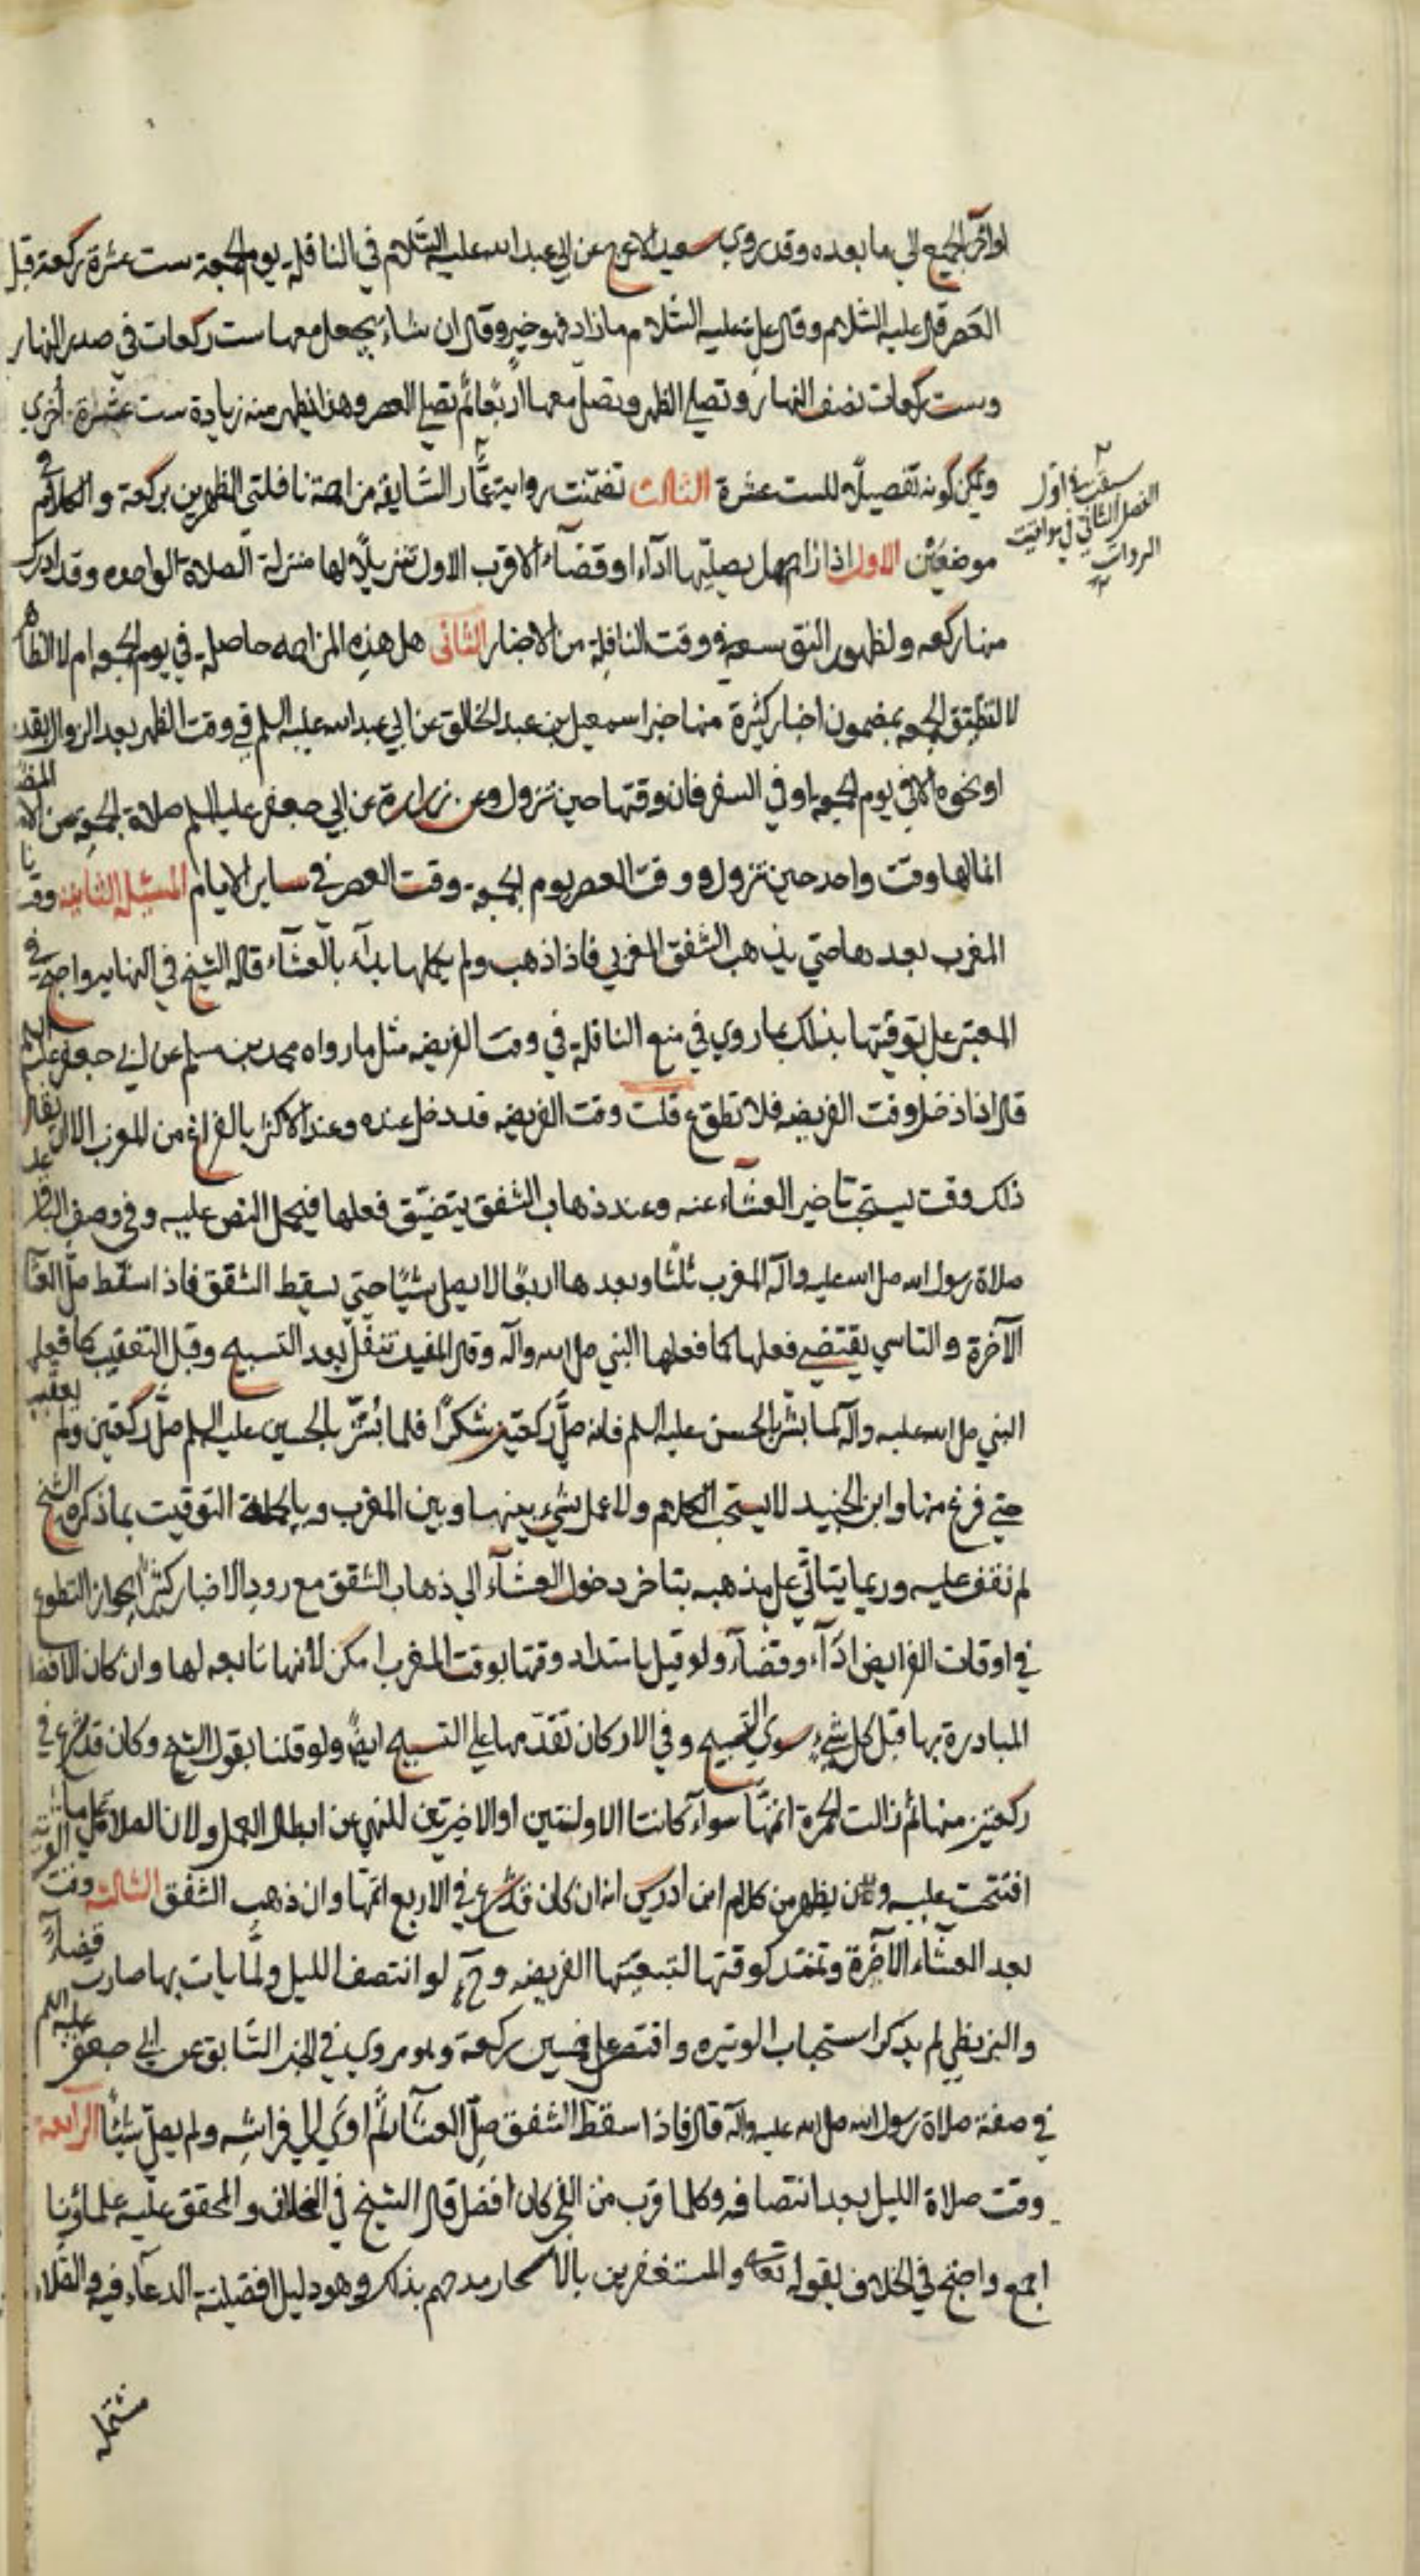 اواخر الجميع الي ما بعده وقد روي سعيد الاعرج عن ابي عبد الله عليه السّلام في النافلة يوم الجمعة ست عشرة ركعة قبل
العصر قال عليه السّلام وقال علي عليه السّلام ما زاد فهو خير وقال ان شاء يجعل معها ست ركعات في صدر النهار
وست ركعات نصف النهار وتصلي الظهر وتصلّ معها اربعًا ثم تصلي العصر وهذا يظهر منه زيادة ست عشرة اخري
ويمكن كونه تفصيلًا للست عشرة الثالث تضمّنت رواية عمّار السّابقة مزاحمة نافلتي الظهرين بركعة والكلام في
سبقت في اول
الفصل الثاني في مواقيت
الرواتب
موضعين الاول اذا زاحم هل يصلّيها اداء او قضآء الاقرب الاول تنزيلًا لها منزلة الصلاة الواحده وقد ادرك
منها ركعه ولظهور النق بسعة وقت النافلة من الاخبار الثاني هل هذه المزاحمه حاصله في يوم الجمعه ام لا الظاهر
لا لتضيّق الجمعه بمضمون اخبار كثيرة منها خبر اسمعيل بن عبد الخالق عن ابي عبد الله عليه السلم في وقت الظهر بعد الزوال بقدم
او نحوه الا في يوم الجمعه او في السفر فان وقتها حين تزول وعن زرارة عن ابي جعفر عليه السلم صلاة الجمعة من الامر المضيق
انما لها وقت واحد حين تزول و وقت العصر يوم الجمعة وقت العصر في ساير الايام المسئلة الثانية وقت
المغرب بعدها حتي يذهب الشفق المغربي فاذا ذهب ولم يكملها بدآء بالعشآء قاله الشيخ في النهاية واحتج في
المعتبر علي توقيتها بذلك بما روي في منع النافلة في وقت الفريضه مثل ما رواه محمد بن مسلم عن ابي جعفر عليه السلم
قال اذا دخل وقت الفريضه فلا تطوّع قلت وقت الفريضه قد دخل عنده وعند الاكثر بالفراغ من المغرب الا ان يقال
ذلك وقت يستحب تاخير العشاء عنه وعند ذهاب الشفق يتضيّق فعلها فيحمل النص عليه وفي وصف الباقر
صلاة رسول الله صل الله عليه وآله المغرب ثلثًا وبعدها اربعًا لا يصل شيئًا حتي يسقط الشقق فاذا سقط صلّ العشآ
الآخرة والتاسي يقتضي فعلها كما فعلها النبي صل الله وآله وقال المفيد تنفّل بعد التسبيح وقبل التعقيب كما فعلها
النبي صل الله عليه وآله لما بشّر بالحسن عليه السلم فانه صلّ ركعتين شكرًا فلما بُشّر بالحسين عليه السلم صلّ ركعتين ولم يعقب
حتي فرغ منها وابن الجنيد لا يستحب الكلام ولا عمل شيء بينها وبين المغرب وبالجملة التوقيت بما ذكره الشيخ
لم نقف عليه وربما يتاتّي علي مذهبه بتاخر دخول العشآء الي ذهاب الشقق مع رود الاخبار كثيرًا بجواز التطوع
في اوقات الفرايض ادآء وقضآء ولو قيل بامتداد وقتها بوقت المغرب امكن لانها تابعه لها وان كان الافضل
المبادرة بها قبل كل شيء سوي التسبيح وفي الاركان تقدّمها علي التسبيح ايضًا ولو قلنا بقول الشيخ وكان قد شرع في
ركعتين منها ثم زالت الحمرة اتمهّا سوآء كانتا الاولتين او الاخيرتين للنهي عن ابطال العمل ولان الصلاة علي ما
افتتحت عليه و يظهر من كلام ابن ادريس انه ان كان قد شرع في الاربع اتمّها وان ذهب الشفق الثالثة وقت الوتيرة
بعد العشاء الآخرة وتمتد كوقتها لتبعيّتها الفريضه وح لو انتصف الليل ولمّا يات بها صارت قضآءً
والبزنطي لم يذكر استحباب الوتيره واقتصر علي خمسين ركعة وهو مروي في الخبر السّابق عن ابي جعفر عليه السلم
في صفة صلاة رسول الله صل الله عليه وآله قال فاذا سقط الشفق صلّ العشآء ثم اوي الي فراشه ولم يصلّ شيئًا الرابعة
وقت صلاة الليل بعد انتصافه وكلما قرب من الفجر كان افضل قال الشيخ في الخلاف والمحقق عليه علماؤنا
اجمع واحتج في الخلاف بقوله تعه والمستغفرين بالاسحار مدحهم بذلك وهو دليل افضلية الدعآء فيه والصلاة
مشتملة